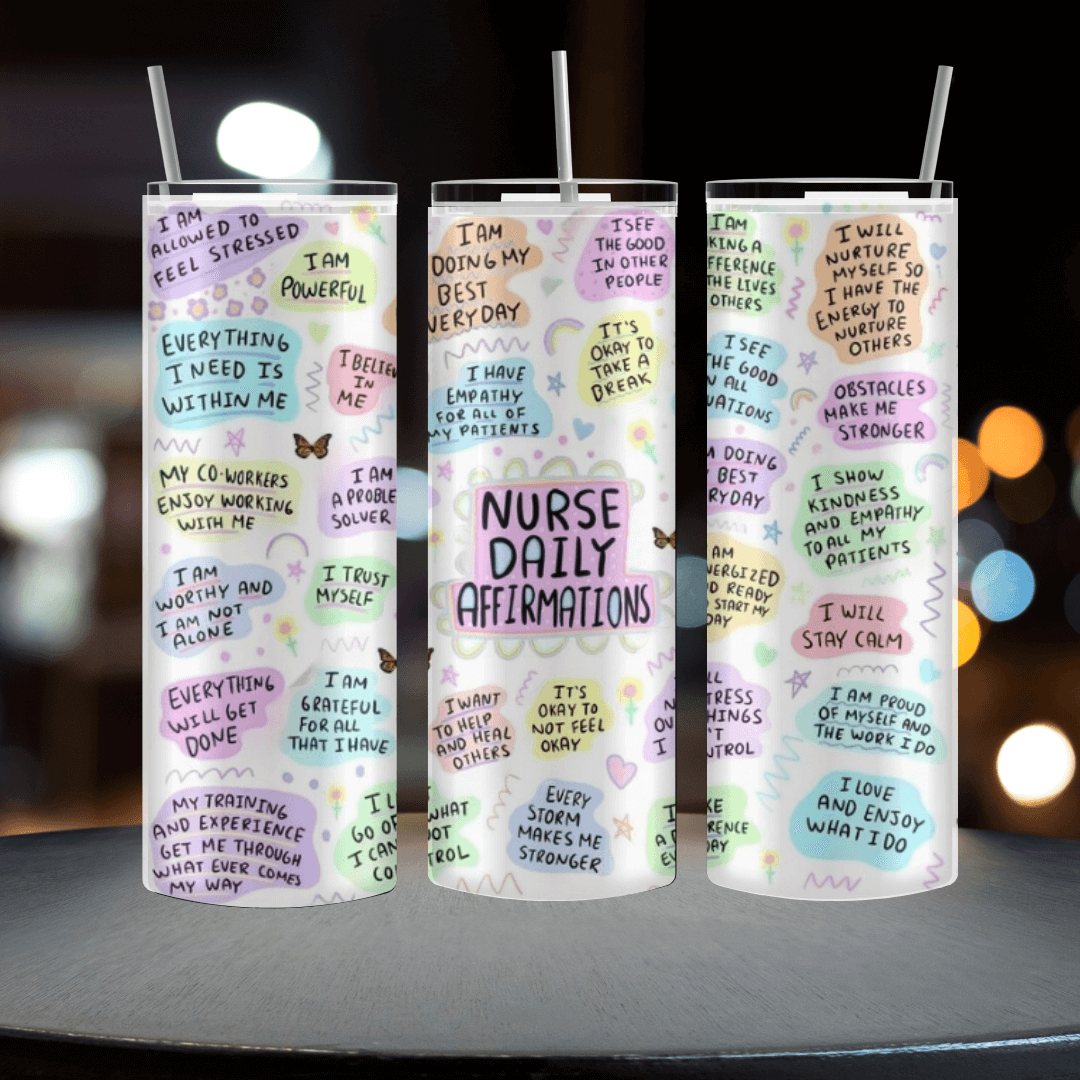 I AM
ALLOWED TO
FEEL STRESSED
I AM
POWERFUL
EVERYTHING
I NEED IS
WITHIN ME
I BELIEV
IN
ME
MY CO-WORKERS
ENJOY WORKING
WITH ME
I AM
A PROBLE
SOLVER
I AM
WORTHY AND
I AM NOT
ALONE
I TRUST
MYSELF
EVERYTHING
WILL GET
DONE
I AM
GRATEFUL
FOR ALL
THAT I HAVE
MY TRAINING
AND EXPERIENCE
GET ME THROUGH
WHAT EVER COMES
MY WAY
I L
GO OF
I CAN
CO
I AM
DOING MY
BEST
VERYDAY
I SEE
THE GOOD
IN OTHER
PEOPLE
IT'S
OKAY TO
TAKE A
BREAK
I HAVE
EMPATHY
FOR ALL OF
MY PATIENTS
NURSE
DAILY
AFFIRMATIONS
I WANT
TO HELP
AND HEAL
OTHERS
IT'S
OKAY TO
NOT FEEL
OKAY
O
N
OV
I
WHAT
OT
TROL
EVERY
STORM
MAKES ME
STRONGER
I
A
EV
I AM
KING A
FFERENCE
THE LIVES
OTHERS
I WILL
NURTURE
MYSELF SO
I HAVE THE
ENERGY TO
NURTURE
OTHERS
I SEE
THE GOOD
N ALL
UATIONS
OBSTACLES
MAKE ME
STRONGER
M DOING
BEST
RYDAY
I SHOW
KINDNESS
AND EMPATHY
TO ALL MY
PATIENTS
AM
NERGIZED
D READY
START MY
DAY
I WILL
STAY CALM
LL
TRESS
HINGS
'T
NTROL
I AM PROUD
OF MYSELF AND
THE WORK I DO
KE
RENCE
DAY
I LOVE
AND ENJOY
WHAT I DO